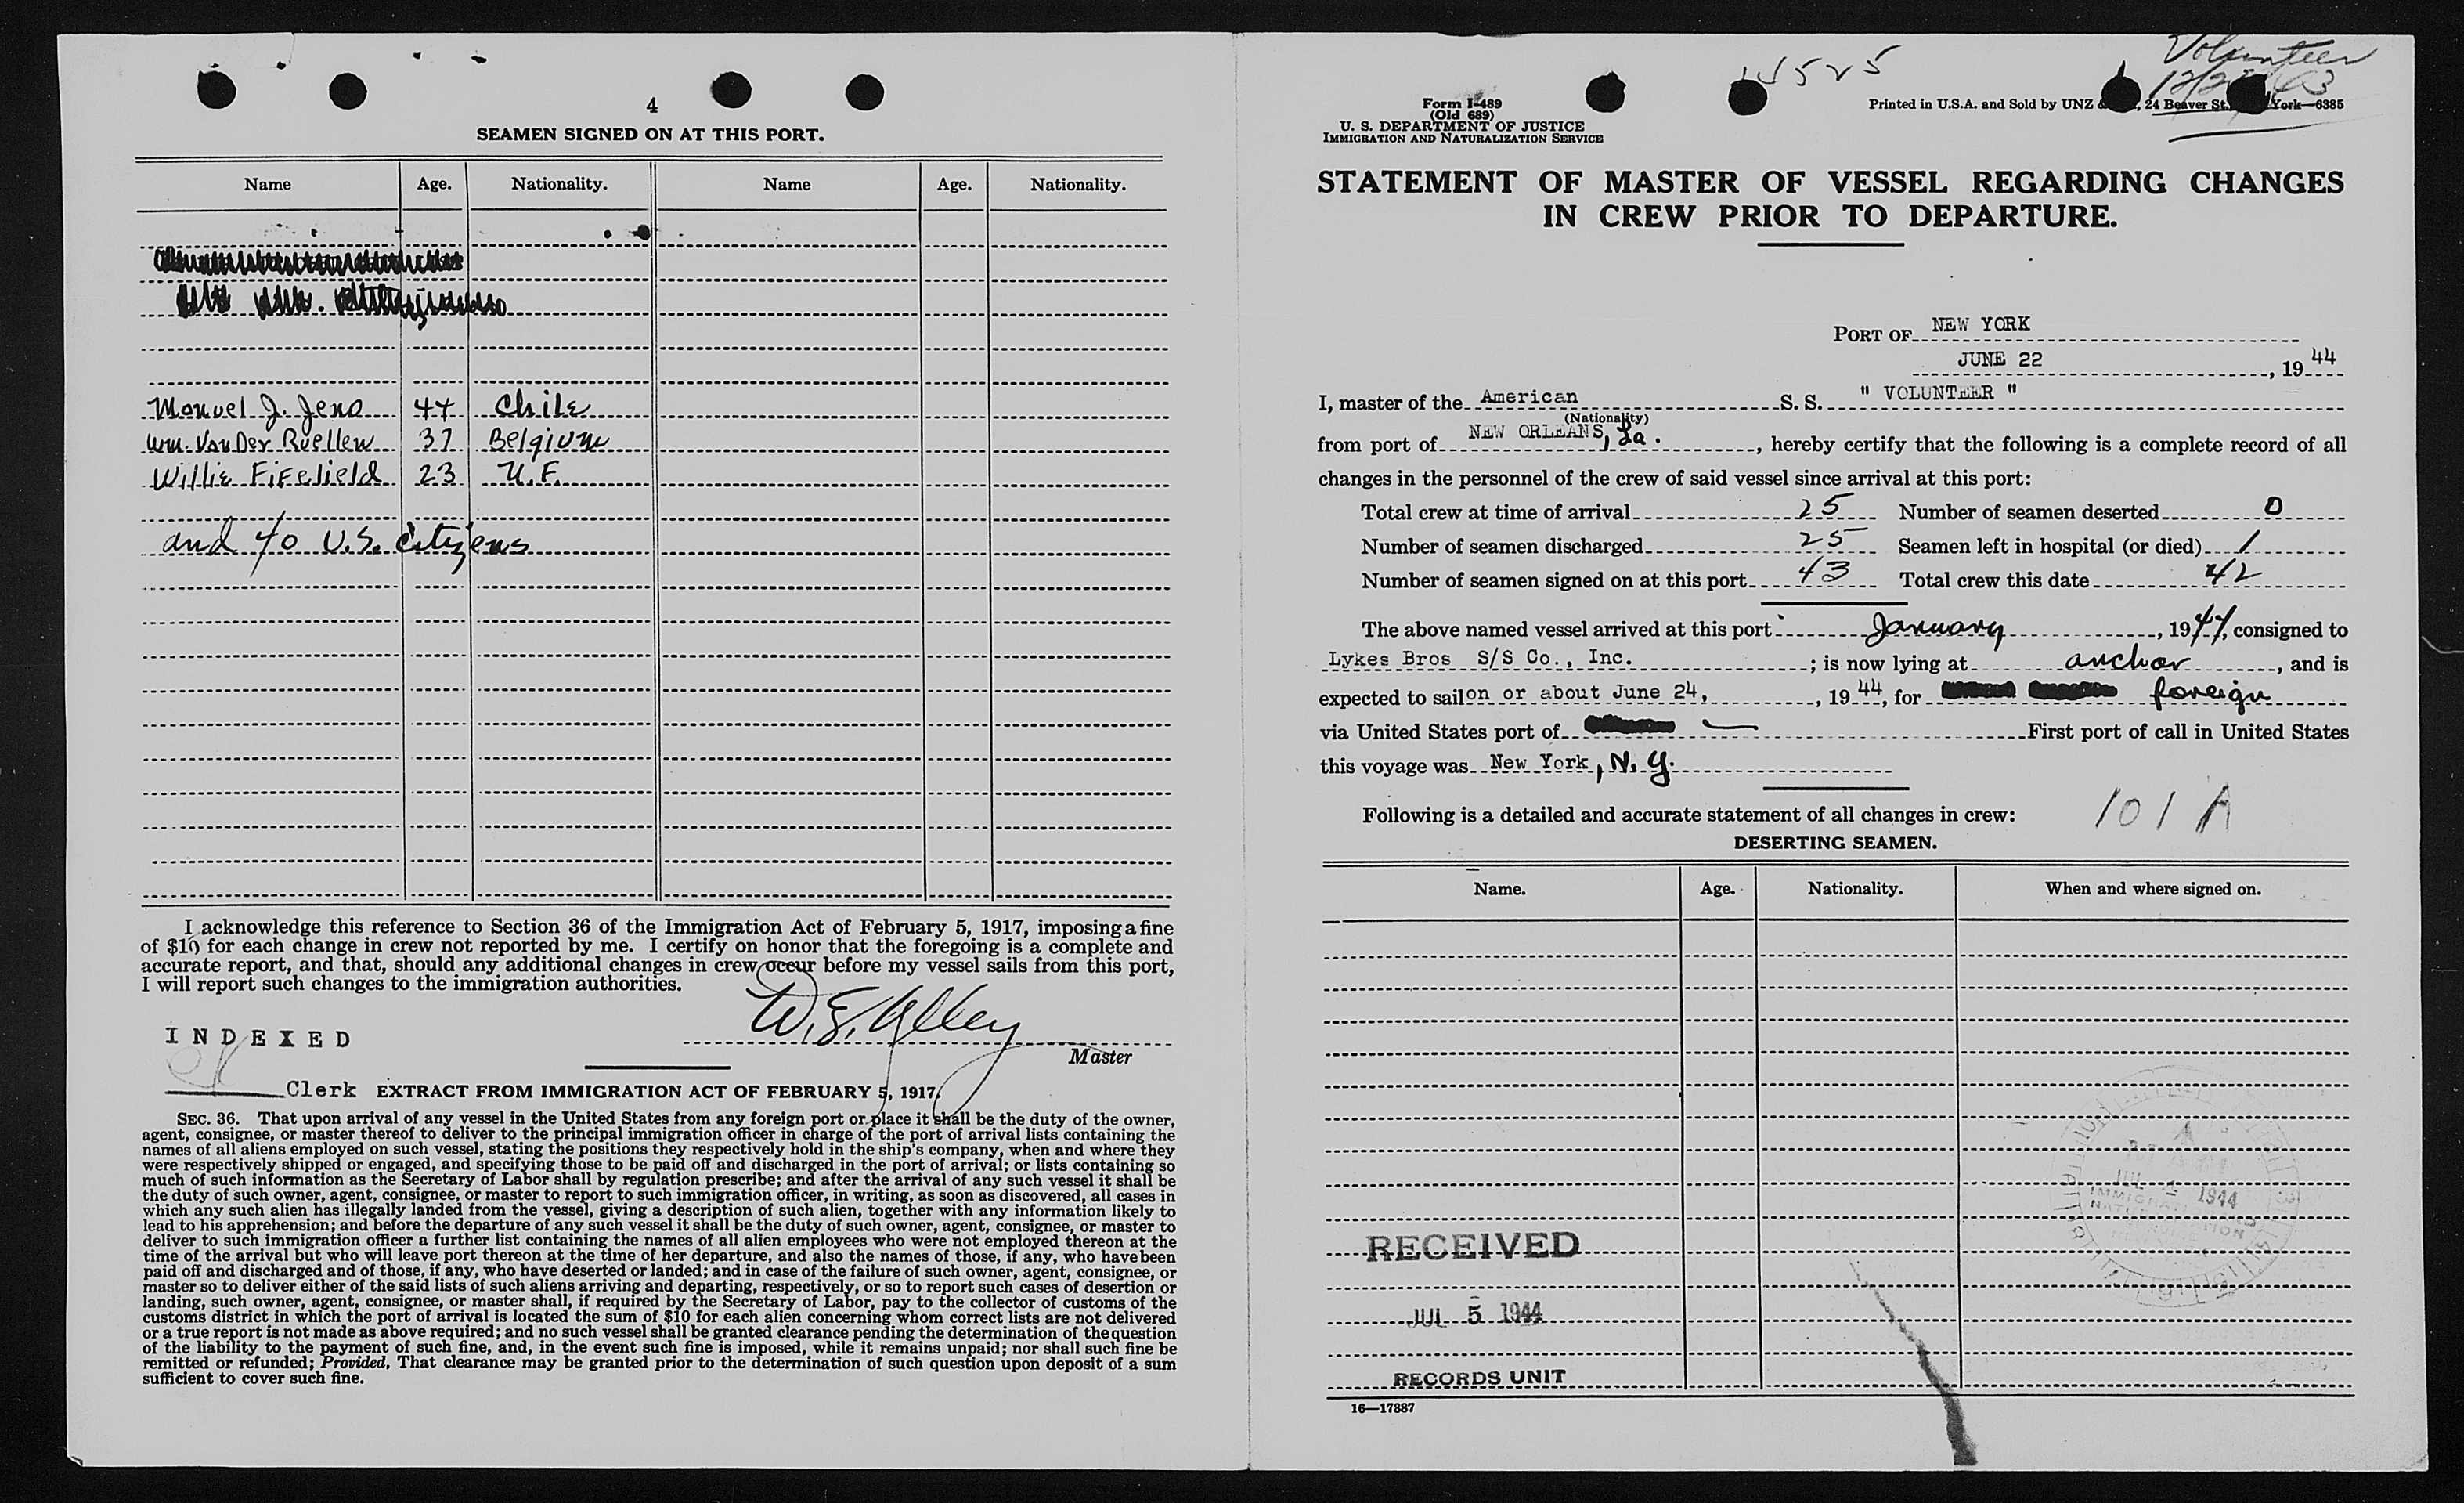 4
SEAMEN SIGNED ON AT THIS PORT.
Name Age. Nationality. Name Age. Nationality.
Manuel J. Jena 44 Chile
Wm. Van Der Ruellen 37 Belgium
Willie Fifelield 23 U.F.
and 40 U.S. citizens
I acknowledge this reference to Section 36 of the Immigration Act of February 5, 1917, imposing a fine
of $10 for each change in crew not reported by me. I certify on honor that the foregoing is a complete and
accurate report, and that, should any additional changes in crew occur before my vessel sails from this port,
I will report such changes to the immigration authorities.
INDEXED
Master
Clerk EXTRACT FROM IMMIGRATION ACT OF FEBRUARY 5, 1917.
SEC. 36. That upon arrival of any vessel in the United States from any foreign port or place it shall be the duty of the owner,
agent, consignee, or master thereof to deliver to the principal immigration officer in charge of the port of arrival lists containing the
names of all aliens employed on such vessel, stating the positions they respectively hold in the ship's company, when and where they
were respectively shipped or engaged, and specifying those to be paid off and discharged in the port of arrival; or lists containing so
much of such information as the Secretary of Labor shall by regulation prescribe; and after the arrival of any such vessel it shall be
the duty of such owner, agent, consignee, or master to report to such immigration officer, in writing, as soon as discovered, all cases in
which any such alien has illegally landed from the vessel, giving a description of such alien, together with any information likely to
lead to his apprehension; and before the departure of any such vessel it shall be the duty of such owner, agent, consignee, or master to
deliver to such immigration officer a further list containing the names of all alien employees who were not employed thereon at the
time of the arrival but who will leave port thereon at the time of her departure, and also the names of those, if any, who have been
paid off and discharged and of those, if any, who have deserted or landed; and in case of the failure of such owner, agent, consignee, or
master so to deliver either of the said lists of such aliens arriving and departing, respectively, or so to report such cases of desertion or
landing, such owner, agent, consignee, or master shall, if required by the Secretary of Labor, pay to the collector of customs of the
customs district in which the port of arrival is located the sum of $10 for each alien concerning whom correct lists are not delivered
or a true report is not made as above required; and no such vessel shall be granted clearance pending the determination of the question
of the liability to the payment of such fine, and, in the event such fine is imposed, while it remains unpaid; nor shall such fine be
remitted or refunded; Provided, That clearance may be granted prior to the determination of such question upon deposit of a sum
sufficient to cover such fine.
Volunteer
Form I-489
(Old 689)
U. S. DEPARTMENT OF JUSTICE
IMMIGRATION AND NATURALIZATION SERVICE
Printed in U.S.A. and Sold by UNZ &, 24 Beaver St. York—6385
STATEMENT OF MASTER OF VESSEL REGARDING CHANGES
IN CREW PRIOR TO DEPARTURE.
PORT OF NEW YORK
JUNE 22, 1944
I, master of the American S. S. " VOLUNTEER "
(Nationality)
from port of NEW ORLEANS, La., hereby certify that the following is a complete record of all
changes in the personnel of the crew of said vessel since arrival at this port:
Total crew at time of arrival 25 Number of seamen deserted 0
Number of seamen discharged 25 Seamen left in hospital (or died) 1
Number of seamen signed on at this port 43 Total crew this date 42
The above named vessel arrived at this port January, 1944, consigned to
Lykes Bros S/S Co., Inc.; is now lying at anchor, and is
expected to sail on or about June 24, 1944, for foreign
via United States port of — First port of call in United States
this voyage was New York, N.Y.
Following is a detailed and accurate statement of all changes in crew:
101 A
DESERTING SEAMEN.
Name. Age. Nationality. When and where signed on.
RECEIVED
JUL 5 1944
RECORDS UNIT
16—17887